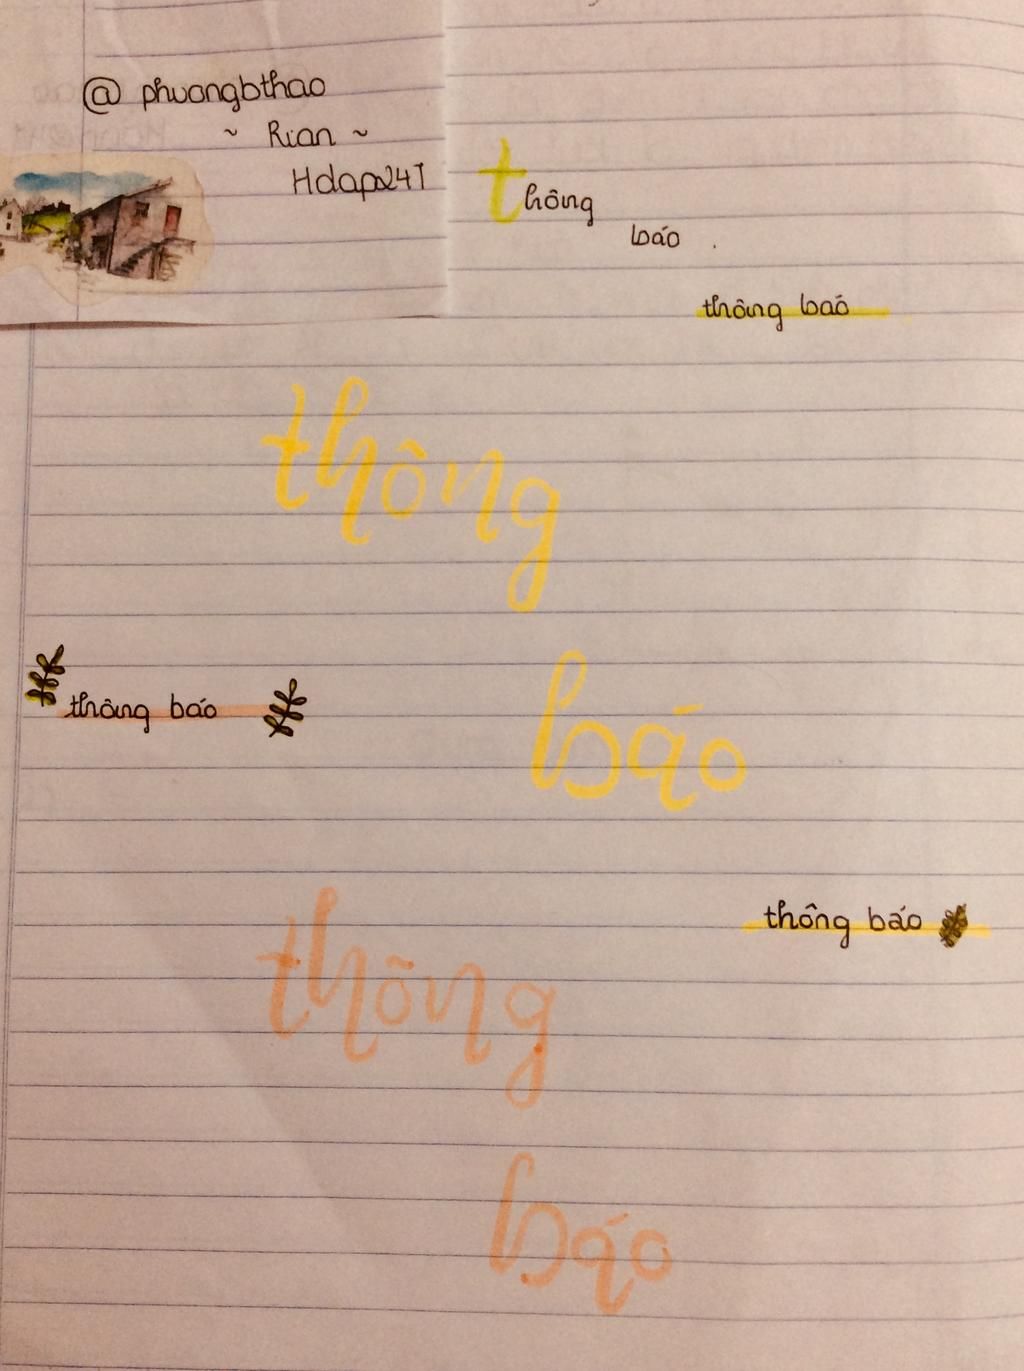 @ phuongbthao
~ Rian ~
Hdapx24T
thông
báo
thông báo
thông
báo
thông báo
thông báo
thông
báo